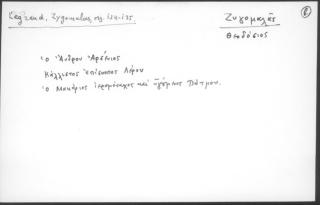 Legrand, Zygomalas, σσ. 134-135
Ζυγομαλᾶς
Θεοδόσιος
ὁ Ἄνδρου Ἀρσένιος
Κάλλιστος ἐπίσκοπος Λέρου
ὁ Μακάριος ἱερομόναχος καὶ ἡγούμενος Πάτμου.